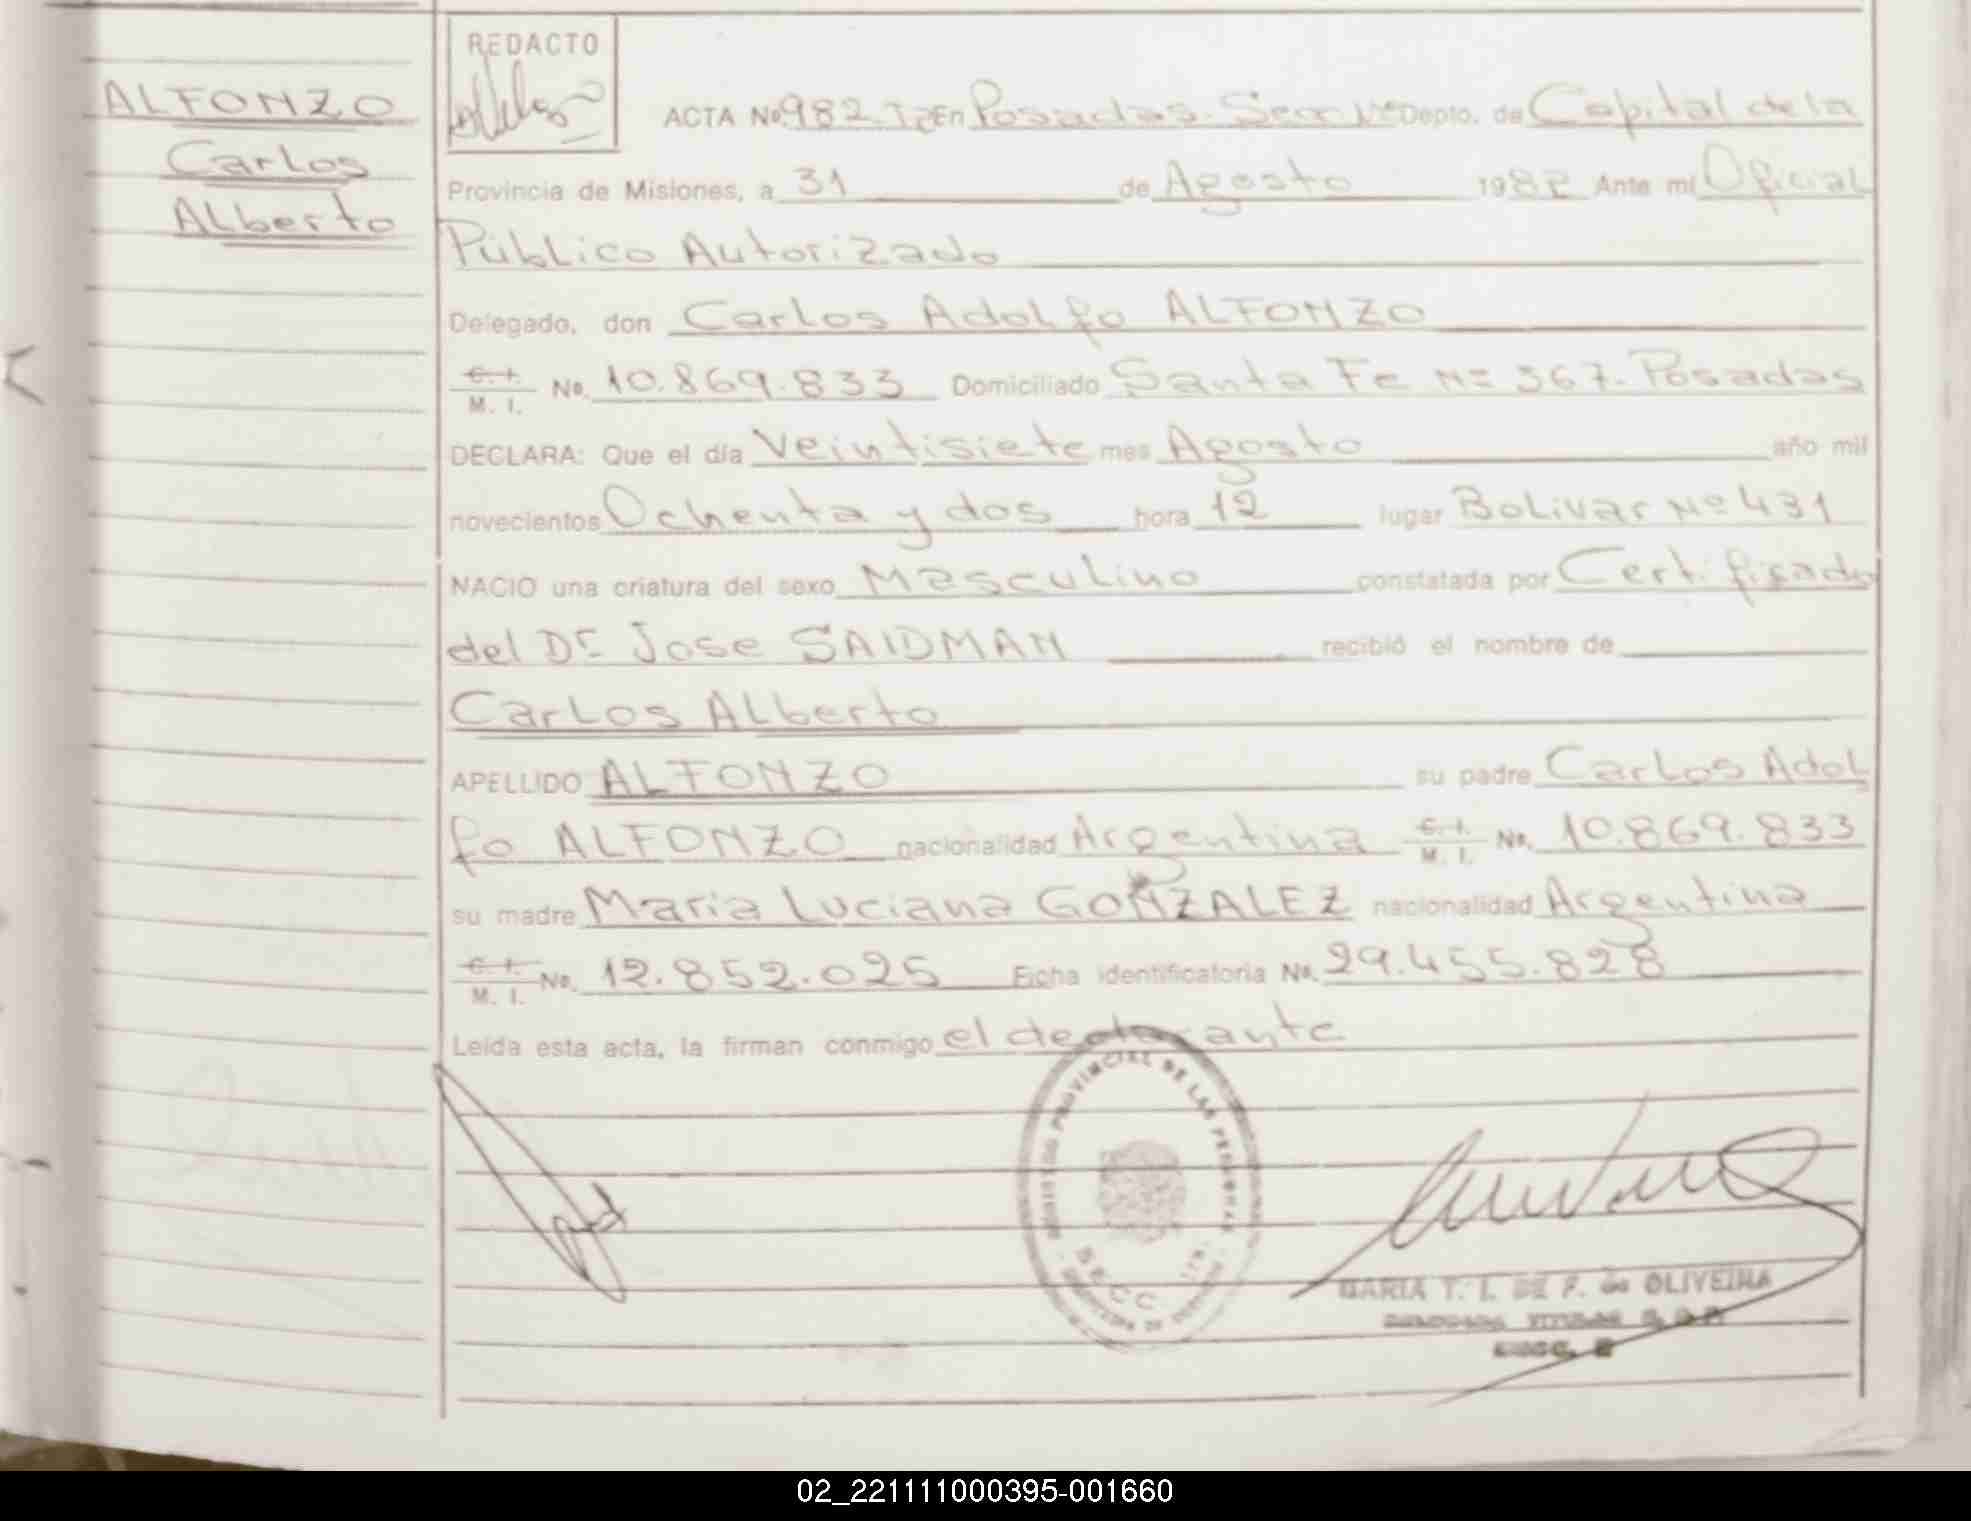 ALFONZO
Carlos
Alberto
REDACTO
ACTA No 982 T2 En Posadas. Secc Depto. de Capital de la
Provincia de Misiones, a 31 de Agosto 1982 Ante mí Oficial
Público Autorizado
Delegado, don Carlos Adolfo ALFONZO
C. I. M. I. No. 10.869.833 Domiciliado Santa Fe Nº 367. Posadas
DECLARA: Que el día Veintisiete mes Agosto año mil
novecientos Ochenta y dos hora 12 lugar Bolivar Nº 431
NACIO una criatura del sexo Masculino constatada por Certificado
del Dr Jose SAIDMAN recibió el nombre de
Carlos Alberto
APELLIDO ALFONZO su padre Carlos Adol
fo ALFONZO nacionalidad Argentina C. I. M. I. No. 10.869.833
su madre Maria Luciana GONZALEZ nacionalidad Argentina
C. I. M. I. No. 12.852.025 Ficha identificatoria No. 29.455.828
Leída esta acta, la firman conmigo el declarante
REGISTRO PROVINCIAL DE LAS PERSONAS
SECC
MARIA T. I. DE F. de OLIVEIRA
02_221111000395-001660